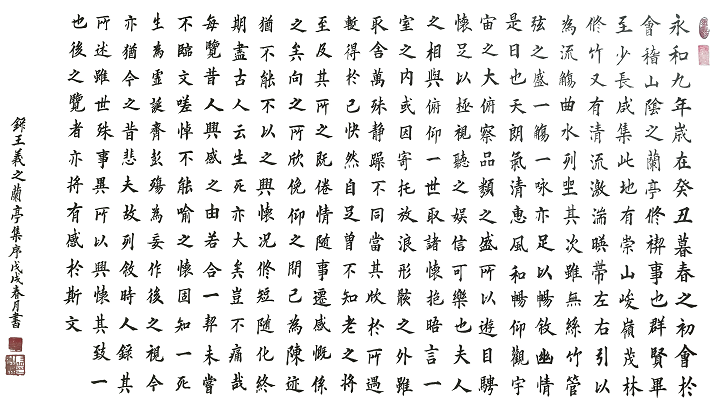 永和九年歲在癸丑暮春之初會於
會稽山陰之蘭亭脩禊事也群賢畢
至少長咸集此地有崇山峻嶺茂林
脩竹又有清流激湍暎帶左右引以
為流觴曲水列坐其次雖無絲竹管
弦之盛一觴一詠亦足以暢敘幽情
是日也天朗氣清惠風和暢仰觀宇
宙之大俯察品類之盛所以遊目騁
懷足以極視聽之娛信可樂也夫人
之相與俯仰一世取諸懷抱晤言一
室之內或因寄托放浪形骸之外雖
取舍萬殊靜躁不同當其欣於所遇
暫得於己快然自足曾不知老之將
至及其所之既倦情隨事遷感慨係
之矣向之所欣俛仰之間已為陳迹
猶不能不以之興懷況脩短隨化終
期盡古人云生死亦大矣豈不痛哉
每覽昔人興感之由若合一契未嘗
不臨文嗟悼不能喻之懷固知一死
生為虛誕齊彭殤為妄作後之視今
亦猶今之昔悲夫故列敘時人錄其
所述雖世殊事異所以興懷其致一
也後之覽者亦將有感於斯文
錄王羲之蘭亭集序戊戌春月書